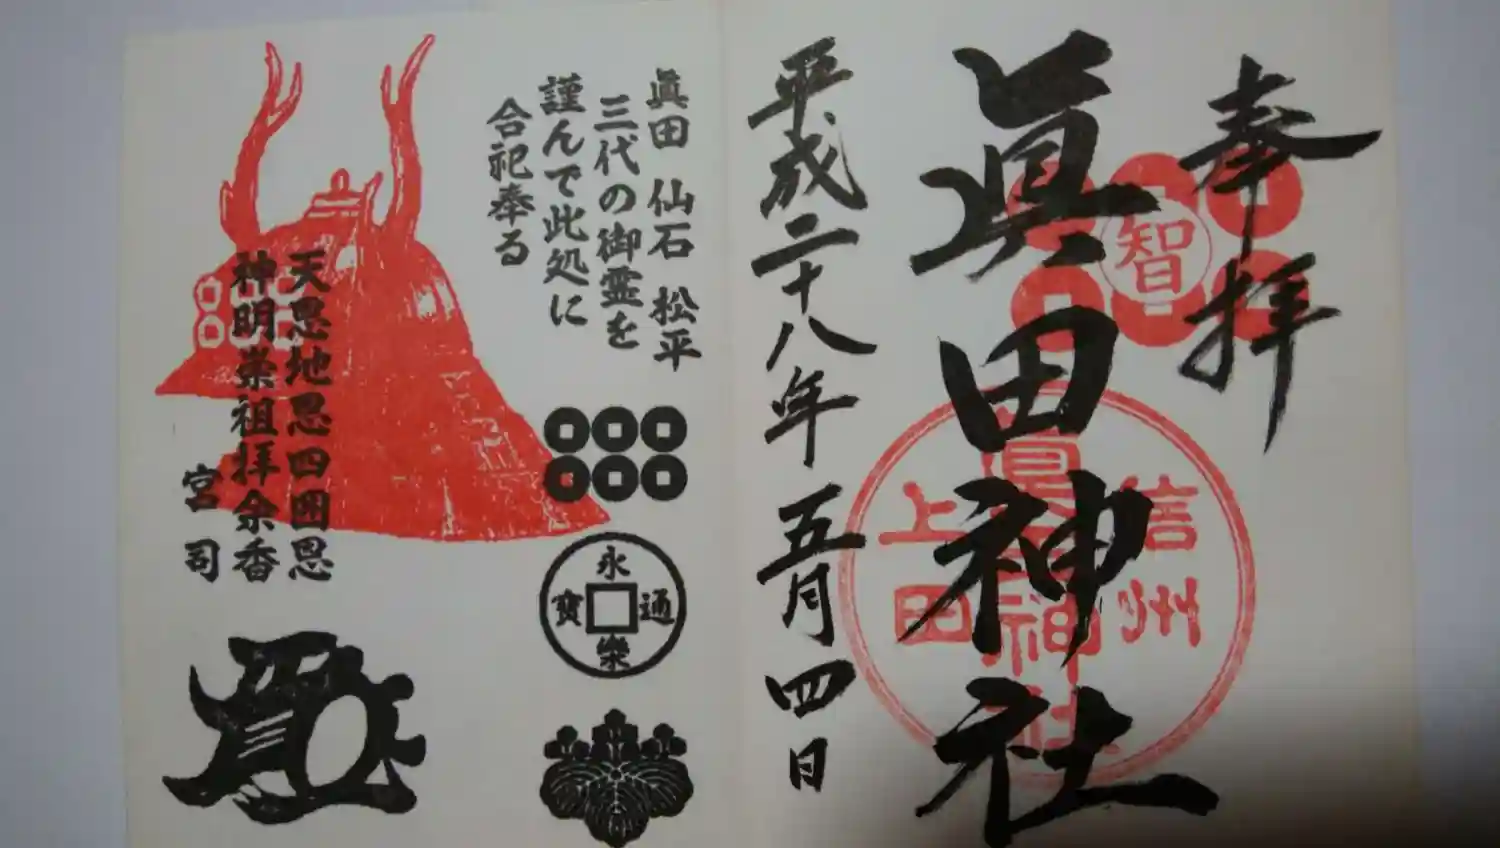 奉拝
智
眞田神社
信州
眞田神社
上田
平成二十八年五月四日
眞田 仙石 松平
三代の御霊を
謹んで此処に
合祀奉る
永樂通寶
天恩地恩四囲恩
神明崇祖拝余香
宮司